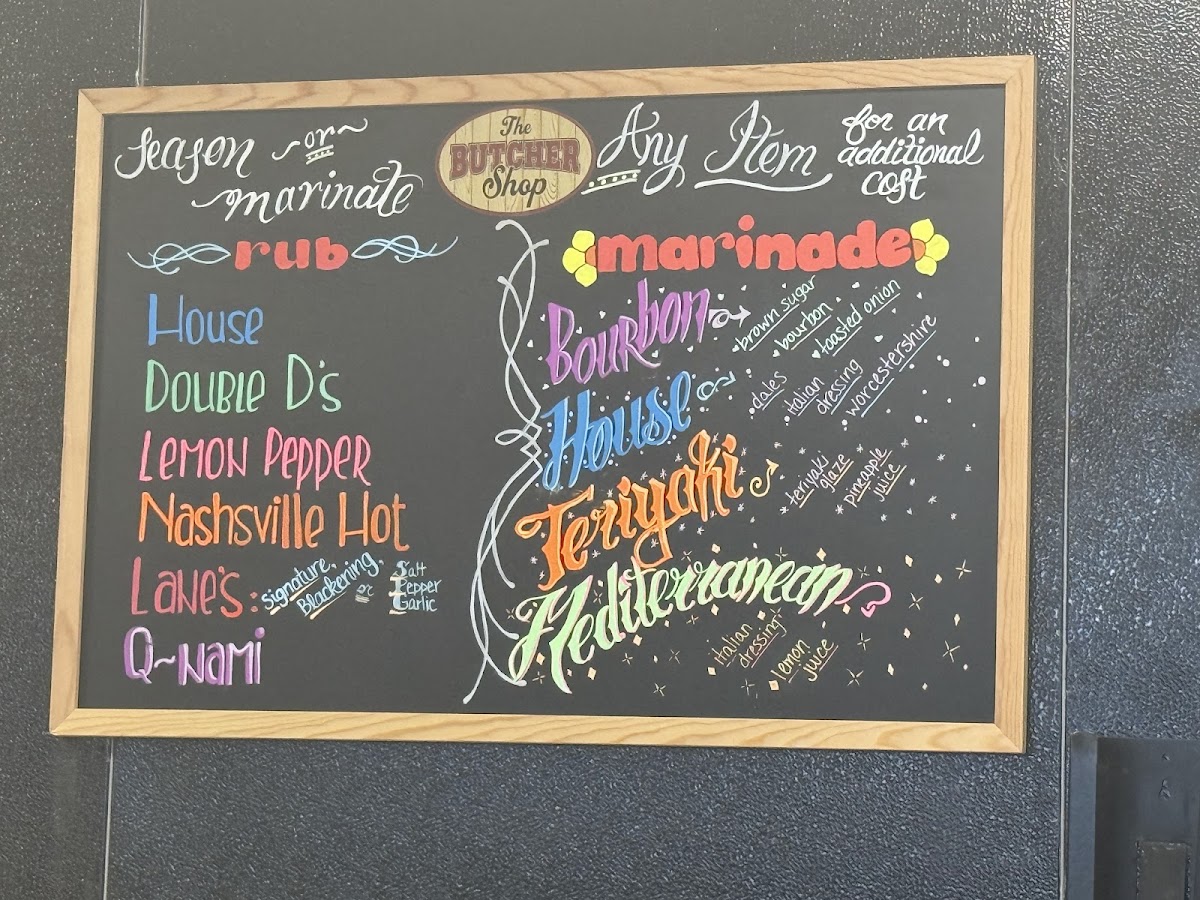 Season ~or~
marinate
The
BUTCHER
Shop
Any Item
for an
additional
cost
rub
House
Double D's
Lemon Pepper
Nashsville Hot
Lane's: Signature, Blackening, or Salt Pepper Garlic
Q~nami
marinade
Bourbon
brown sugar
bourbon
toasted onion
House
dales
italian
dressing
worcestershire
Teriyaki
teriyaki
glaze
pineapple
juice
Mediterranean
italian
dressing
lemon
juice